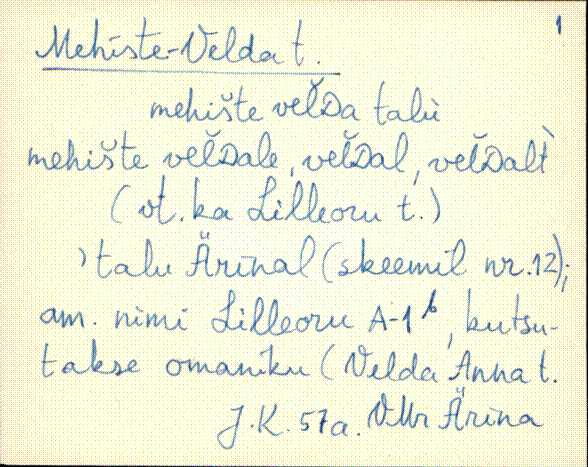 1
Mehiste-Velda t.
mehište vel̆Da talù
mehište vel̆Dale, vel̆Dal, vel̆Dalt̀
(vt. ka Lilleoru t.)
'talu Ärinal (skeemil nr.12);
am. nimi Lilleoru A-1 b, kutsu-
takse omaniku (Velda Anna t.
J.K. 57a. VMr Ärina